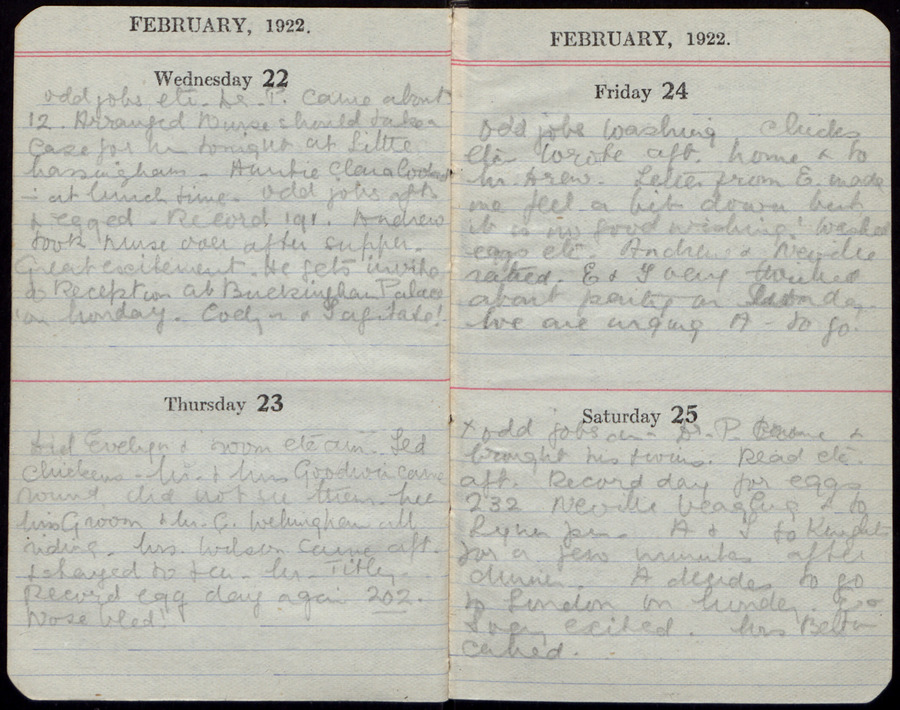 FEBRUARY, 1922.
Wednesday 22
odd jobs etc. Dr. P. came about
12. Arranged Nurse should take a
case for him tonight at Little
Massingham. Auntie Clara
at lunch time. odd jobs aft.
& egged. Record 191. Andrew
took Nurse over after supper.
Great excitement. He gets invite
to Reception at Buckingham Palace
on Monday.
Thursday 23
Did Evelyn's room etc am. Fed
Chickens. Mr. & Mrs Goodwin came
round did not see them. Met
Miss Groom & Mr. G. Wellingham all
riding. Mrs. Wilson came aft.
& stayed to tea. Mr. Titley
Record egg day again 202.
Nose bled!
FEBRUARY, 1922.
Friday 24
Odd jobs washing chicks
etc. Wrote aft. home & to
Mr. Drew. Letter from E. made
me feel a bit down but
it is no good wishing! Washed
eggs etc. Andrew & Neville
E & I very
about party on
We are urging A - to go.
Saturday 25
odd jobs am. Dr. P. came &
brought his twins. Read etc.
aft. Record day for eggs
232 Neville beagling & to
Lynn pm. A & I to Knights
for a few minutes after
dinner. A decides to go
to London on Monday. E &
I very excited. Mrs
called.